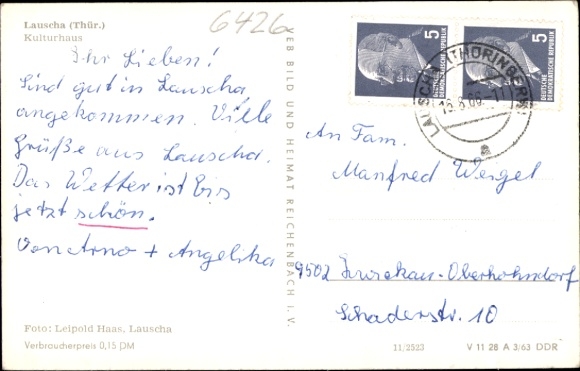 Lauscha (Thür.)
Kulturhaus
6426
Ihr Lieben!
Sind gut in Lauscha
angekommen. Viele
Grüße aus Lauscha.
Das Wetter ist bis
jetzt schön.
Von Arno + Angelika
Foto: Leipold Haas, Lauscha
Verbraucherpreis 0,15 DM
VEB BILD UND HEIMAT REICHENBACH i. V.
5
DEUTSCHE
DEMOKRATISCHE REPUBLIK
5
DEUTSCHE
DEMOKRATISCHE REPUBLIK
LAUSCHA (THÜRINGER W)
16.8.66
a
An Fam.
Manfred Weigel
9502 Zwickau-Oberhohndorf
Schaderstr. 10
11/2523
V 11 28 A 3/63 DDR